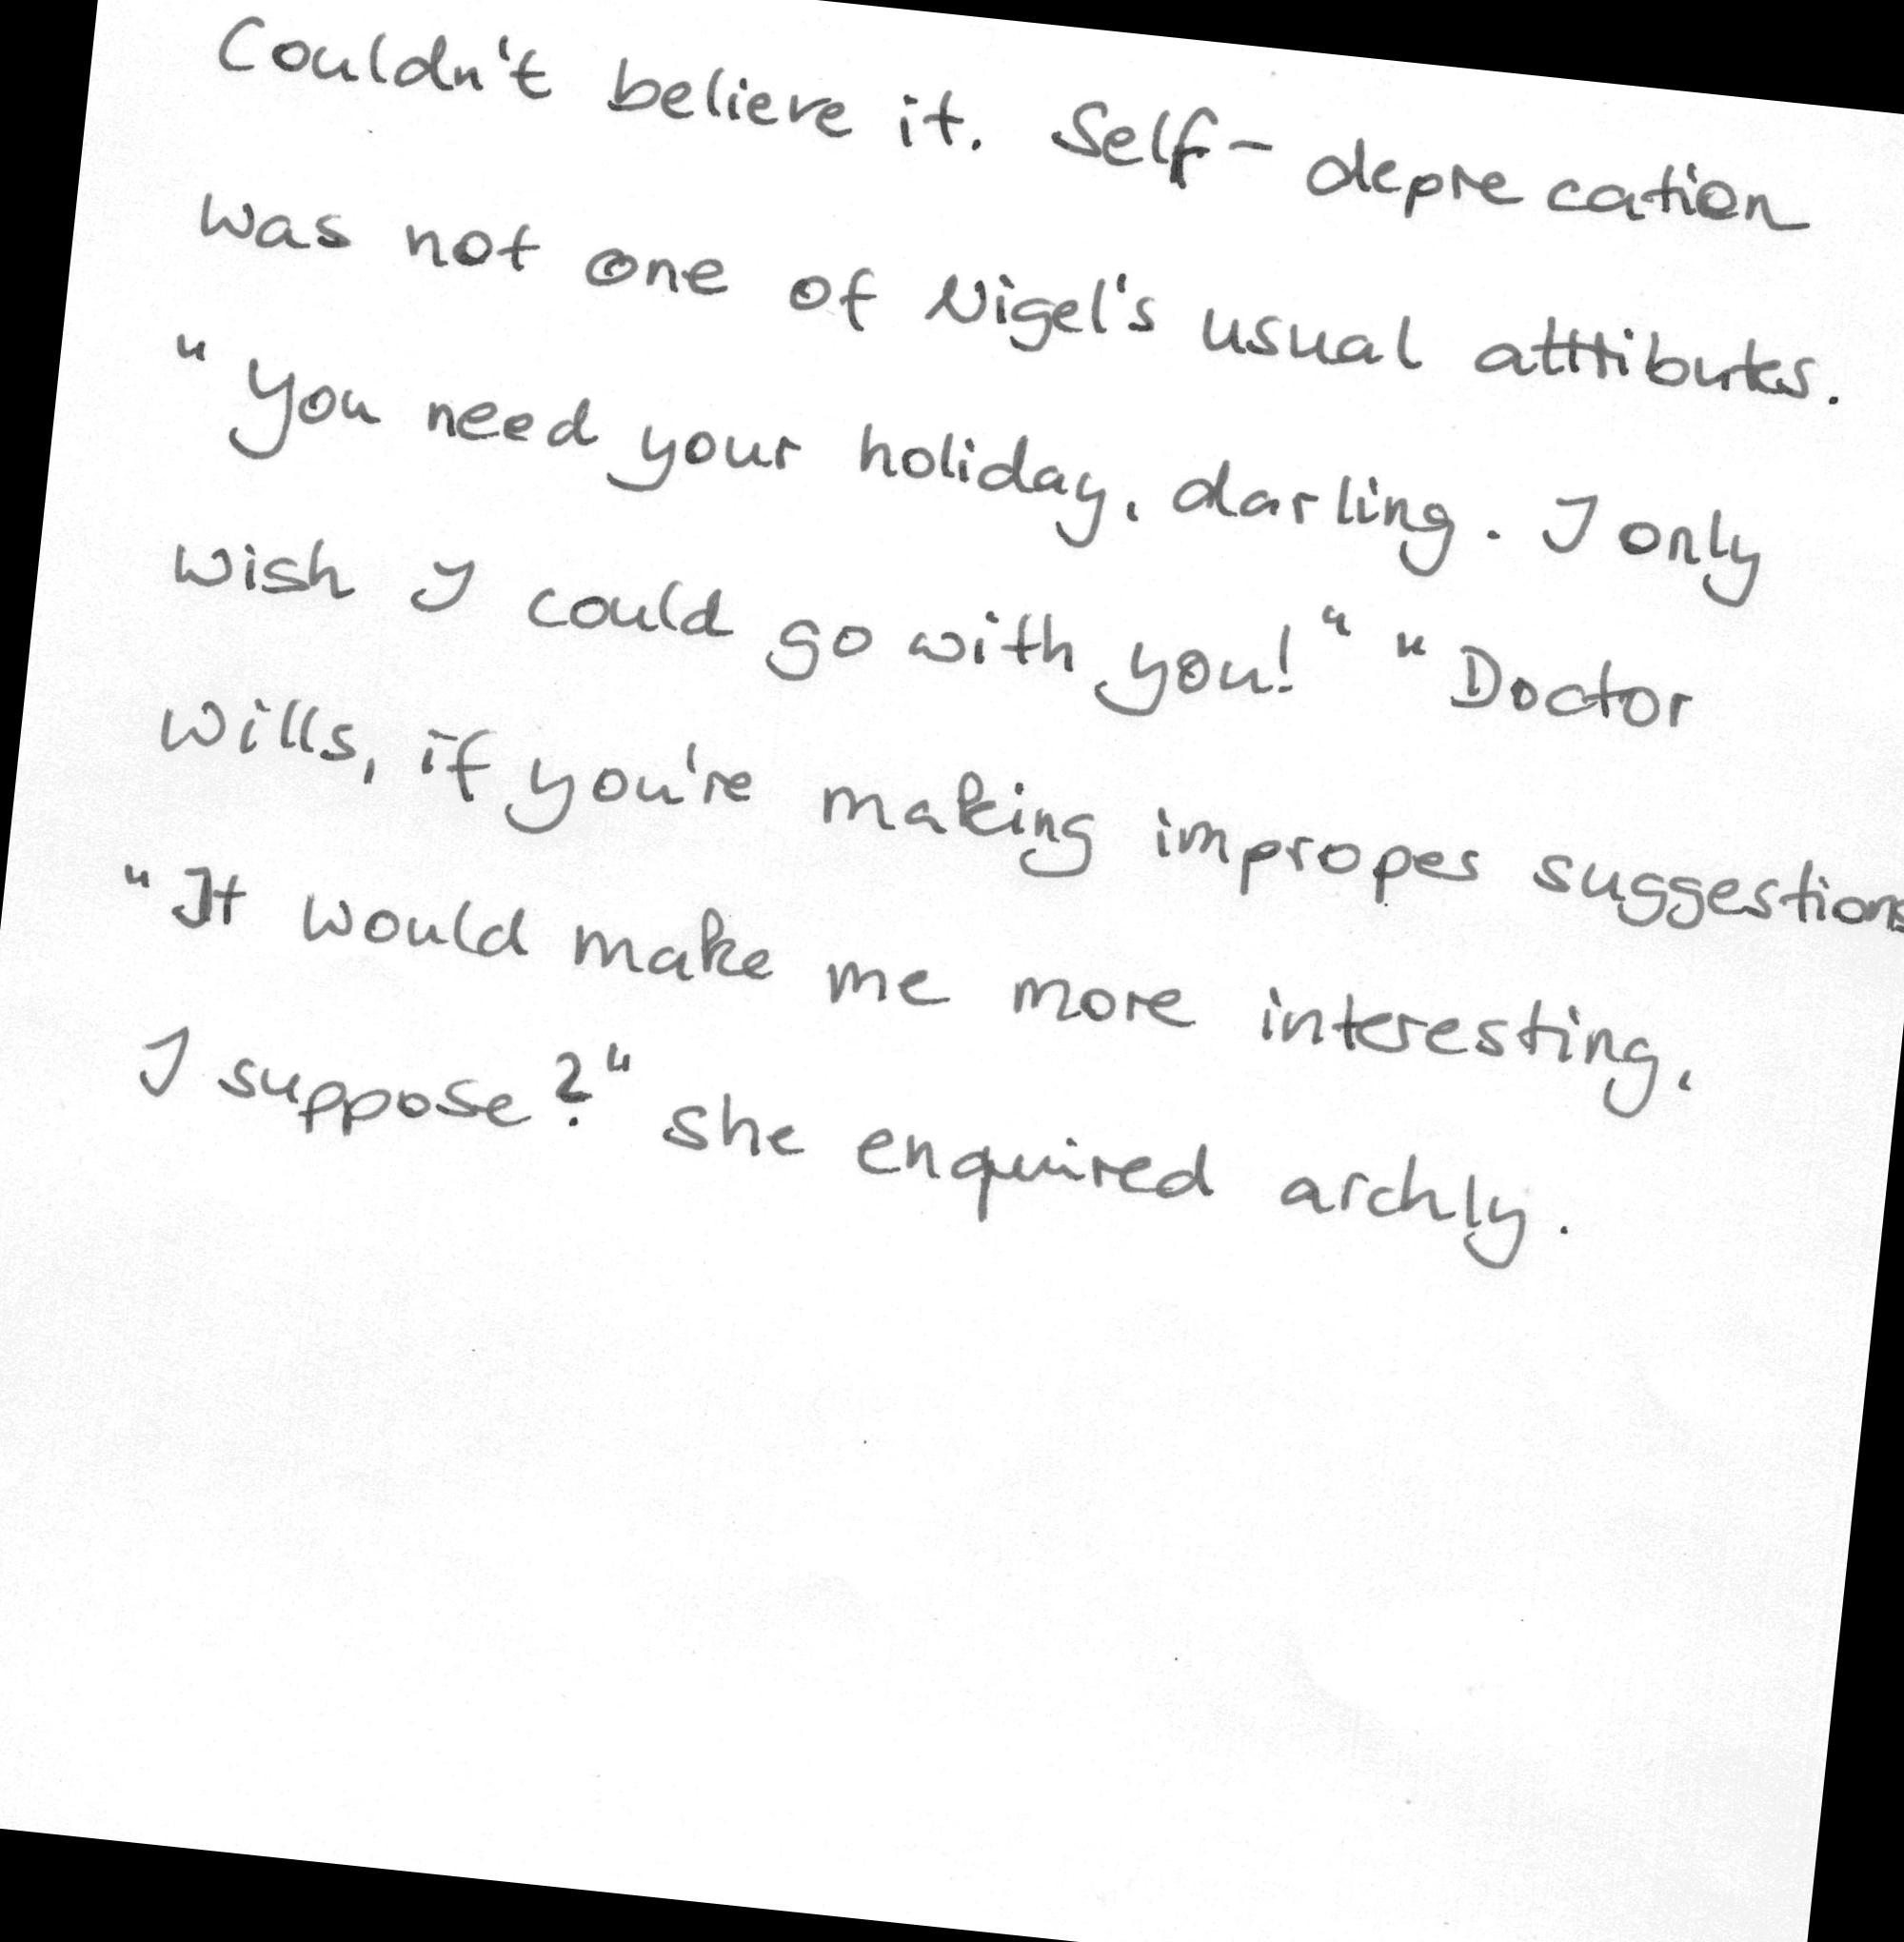 Couldn't believe it. Self-deprecation
was not one of Nigel's usual attributes.
"You need your holiday, darling. I only
wish I could go with you!" "Doctor
Wills, if you're making improper suggestions
"It would make me more interesting,
I suppose?" she enquired archly.